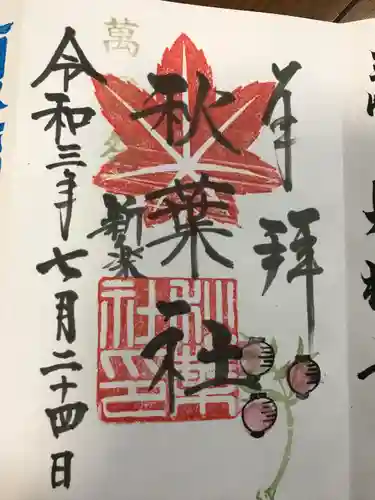 奉拝
秋葉社
新楽
萬
秋葉社印
令和三年七月二十四日